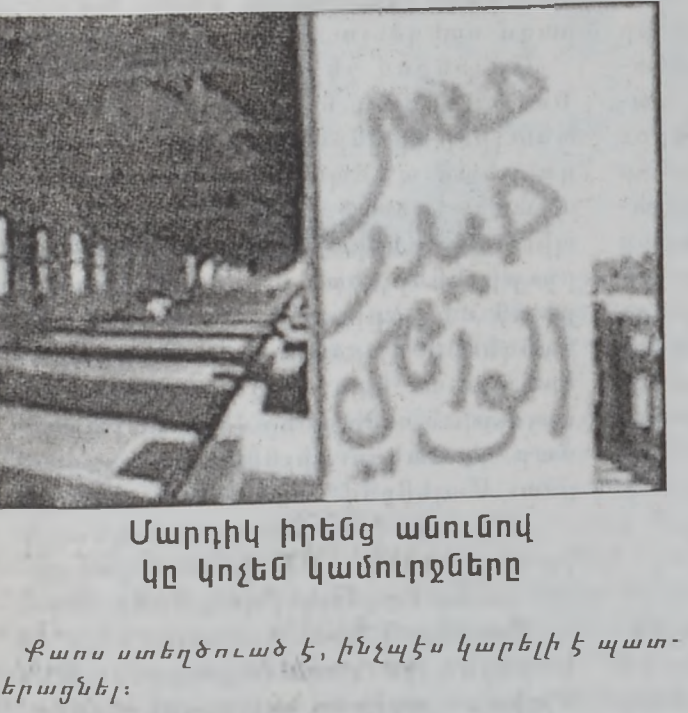 جسر
حيدر
الوايلي
Մարդիկ իրենց անունով
կը կոչեն կամուրջները
Քաոս ստեղծուած է, ինչպէս կարելի է պատ-
երացնել։